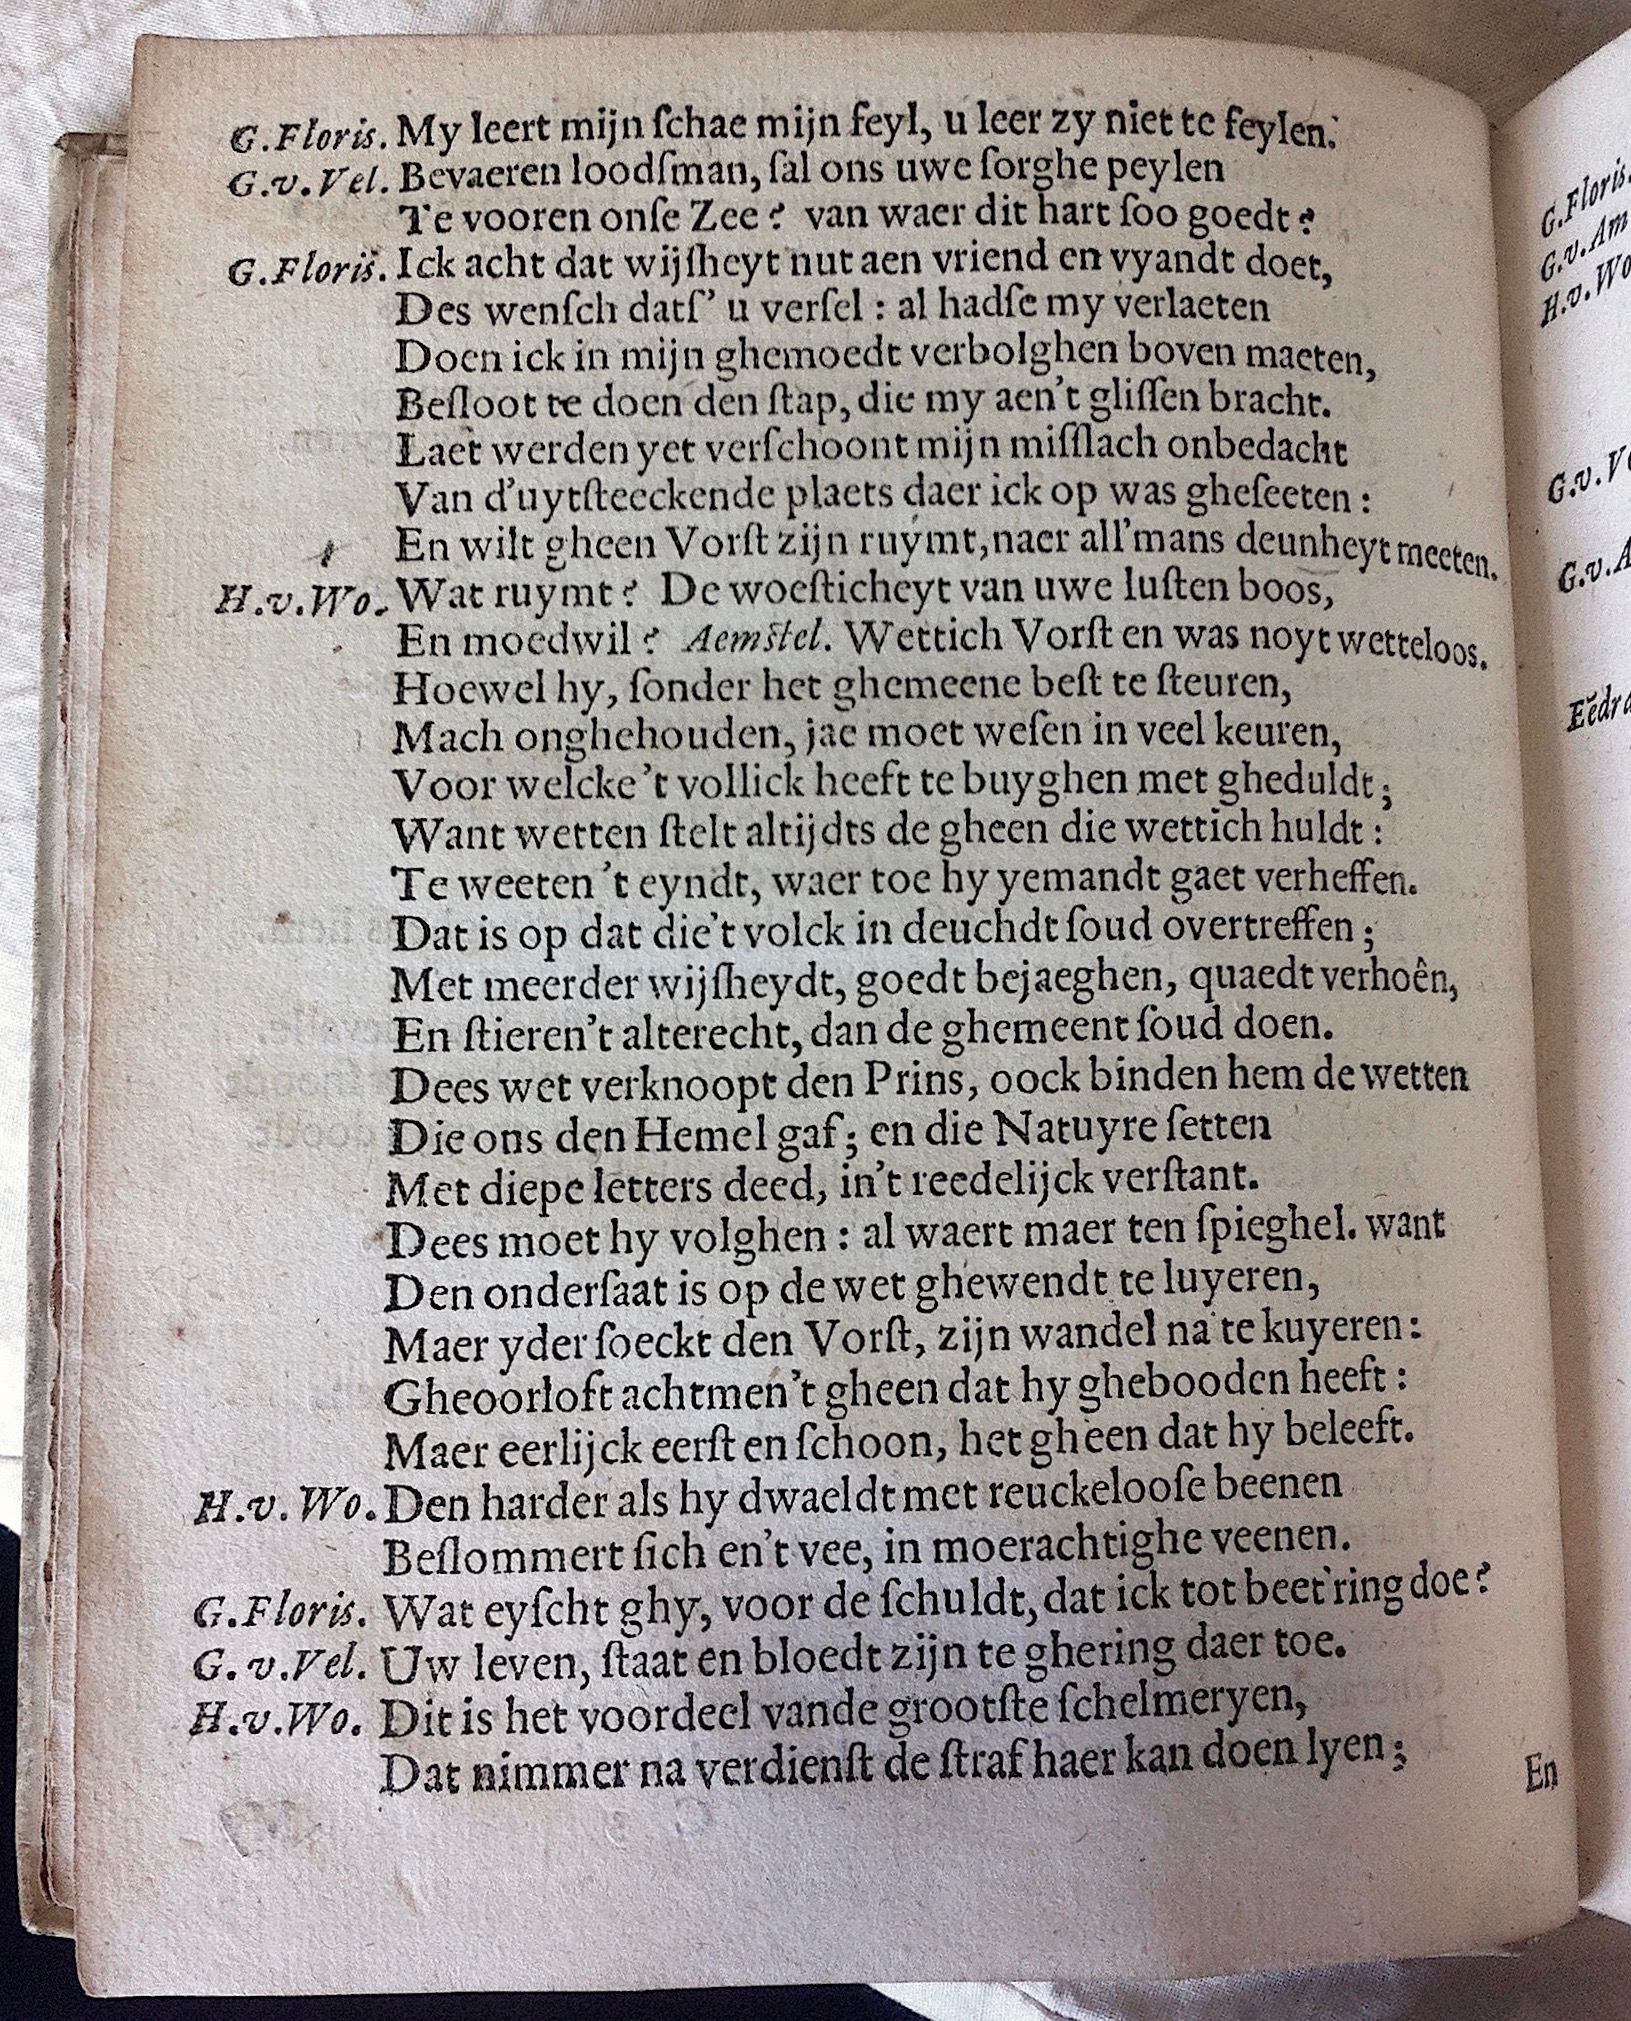 G.Floris. My leert mijn ſchae mijn feyl, u leer zy niet te feylen.
G.v.Vel. Bevaeren loodſman, ſal ons uwe ſorghe peylen
Te vooren onſe Zee? van waer dit hart ſoo goedt?
G.Floris. Ick acht dat wijſheyt nut aen vriend en vyandt doet,
Des wenſch datſ’ u verſel : al hadſe my verlaeten
Doen ick in mijn ghemoedt verbolghen boven maeten,
Beſloot te doen den ſtap, die my aen’t gliſſen bracht.
Laet werden yet verſchoont mijn miſſlach onbedacht
Van d’uytſteeckende plaets daer ick op was gheſeeten :
En wilt gheen Vorſt zijn ruymt, naer all’mans deunheyt meeten.
H.v.Wo. Wat ruymt? De woeſticheyt van uwe luſten boos,
En moedwil? Aemſtel. Wettich Vorſt en was noyt wetteloos.
Hoewel hy, ſonder het ghemeene beſt te ſteuren,
Mach onghehouden, jae moet weſen in veel keuren,
Voor welcke ’t vollick heeft te buyghen met gheduldt;
Want wetten ſtelt altijdts de gheen die wettich huldt :
Te weeten ’t eyndt, waer toe hy yemandt gaet verheffen.
Dat is op dat die’t volck in deuchdt ſoud overtreffen;
Met meerder wijſheydt, goedt bejaeghen, quaedt verhoên,
En ſtieren’t alterecht, dan de ghemeent ſoud doen.
Dees wet verknoopt den Prins, oock binden hem de wetten
Die ons den Hemel gaf; en die Natuyre ſetten
Met diepe letters deed, in’t reedelijck verſtant.
Dees moet hy volghen : al waert maer ten ſpieghel. want
Den onderſaat is op de wet ghewendt te luyeren,
Maer yder ſoeckt den Vorſt, zijn wandel na te kuyeren:
Gheoorloft achtmen’t gheen dat hy ghebooden heeft :
Maer eerlijck eerſt en ſchoon, het gheen dat hy beleeft.
H.v.Wo. Den harder als hy dwaeldt met reuckelooſe beenen
Beſlommert ſich en’t vee, in moerachtighe veenen.
G.Floris. Wat eyſcht ghy, voor de ſchuldt, dat ick tot beet’ring doe?
G.v.Vel. Uw leven, ſtaat en bloedt zijn te ghering daer toe.
H.v.Wo. Dit is het voordeel vande grootſte ſchelmeryen,
Dat nimmer na verdienſt de ſtraf haer kan doen lyen;
En
G.Floris.
G.v.Am
H.v.Wo
G.v.Ve
G.v.A